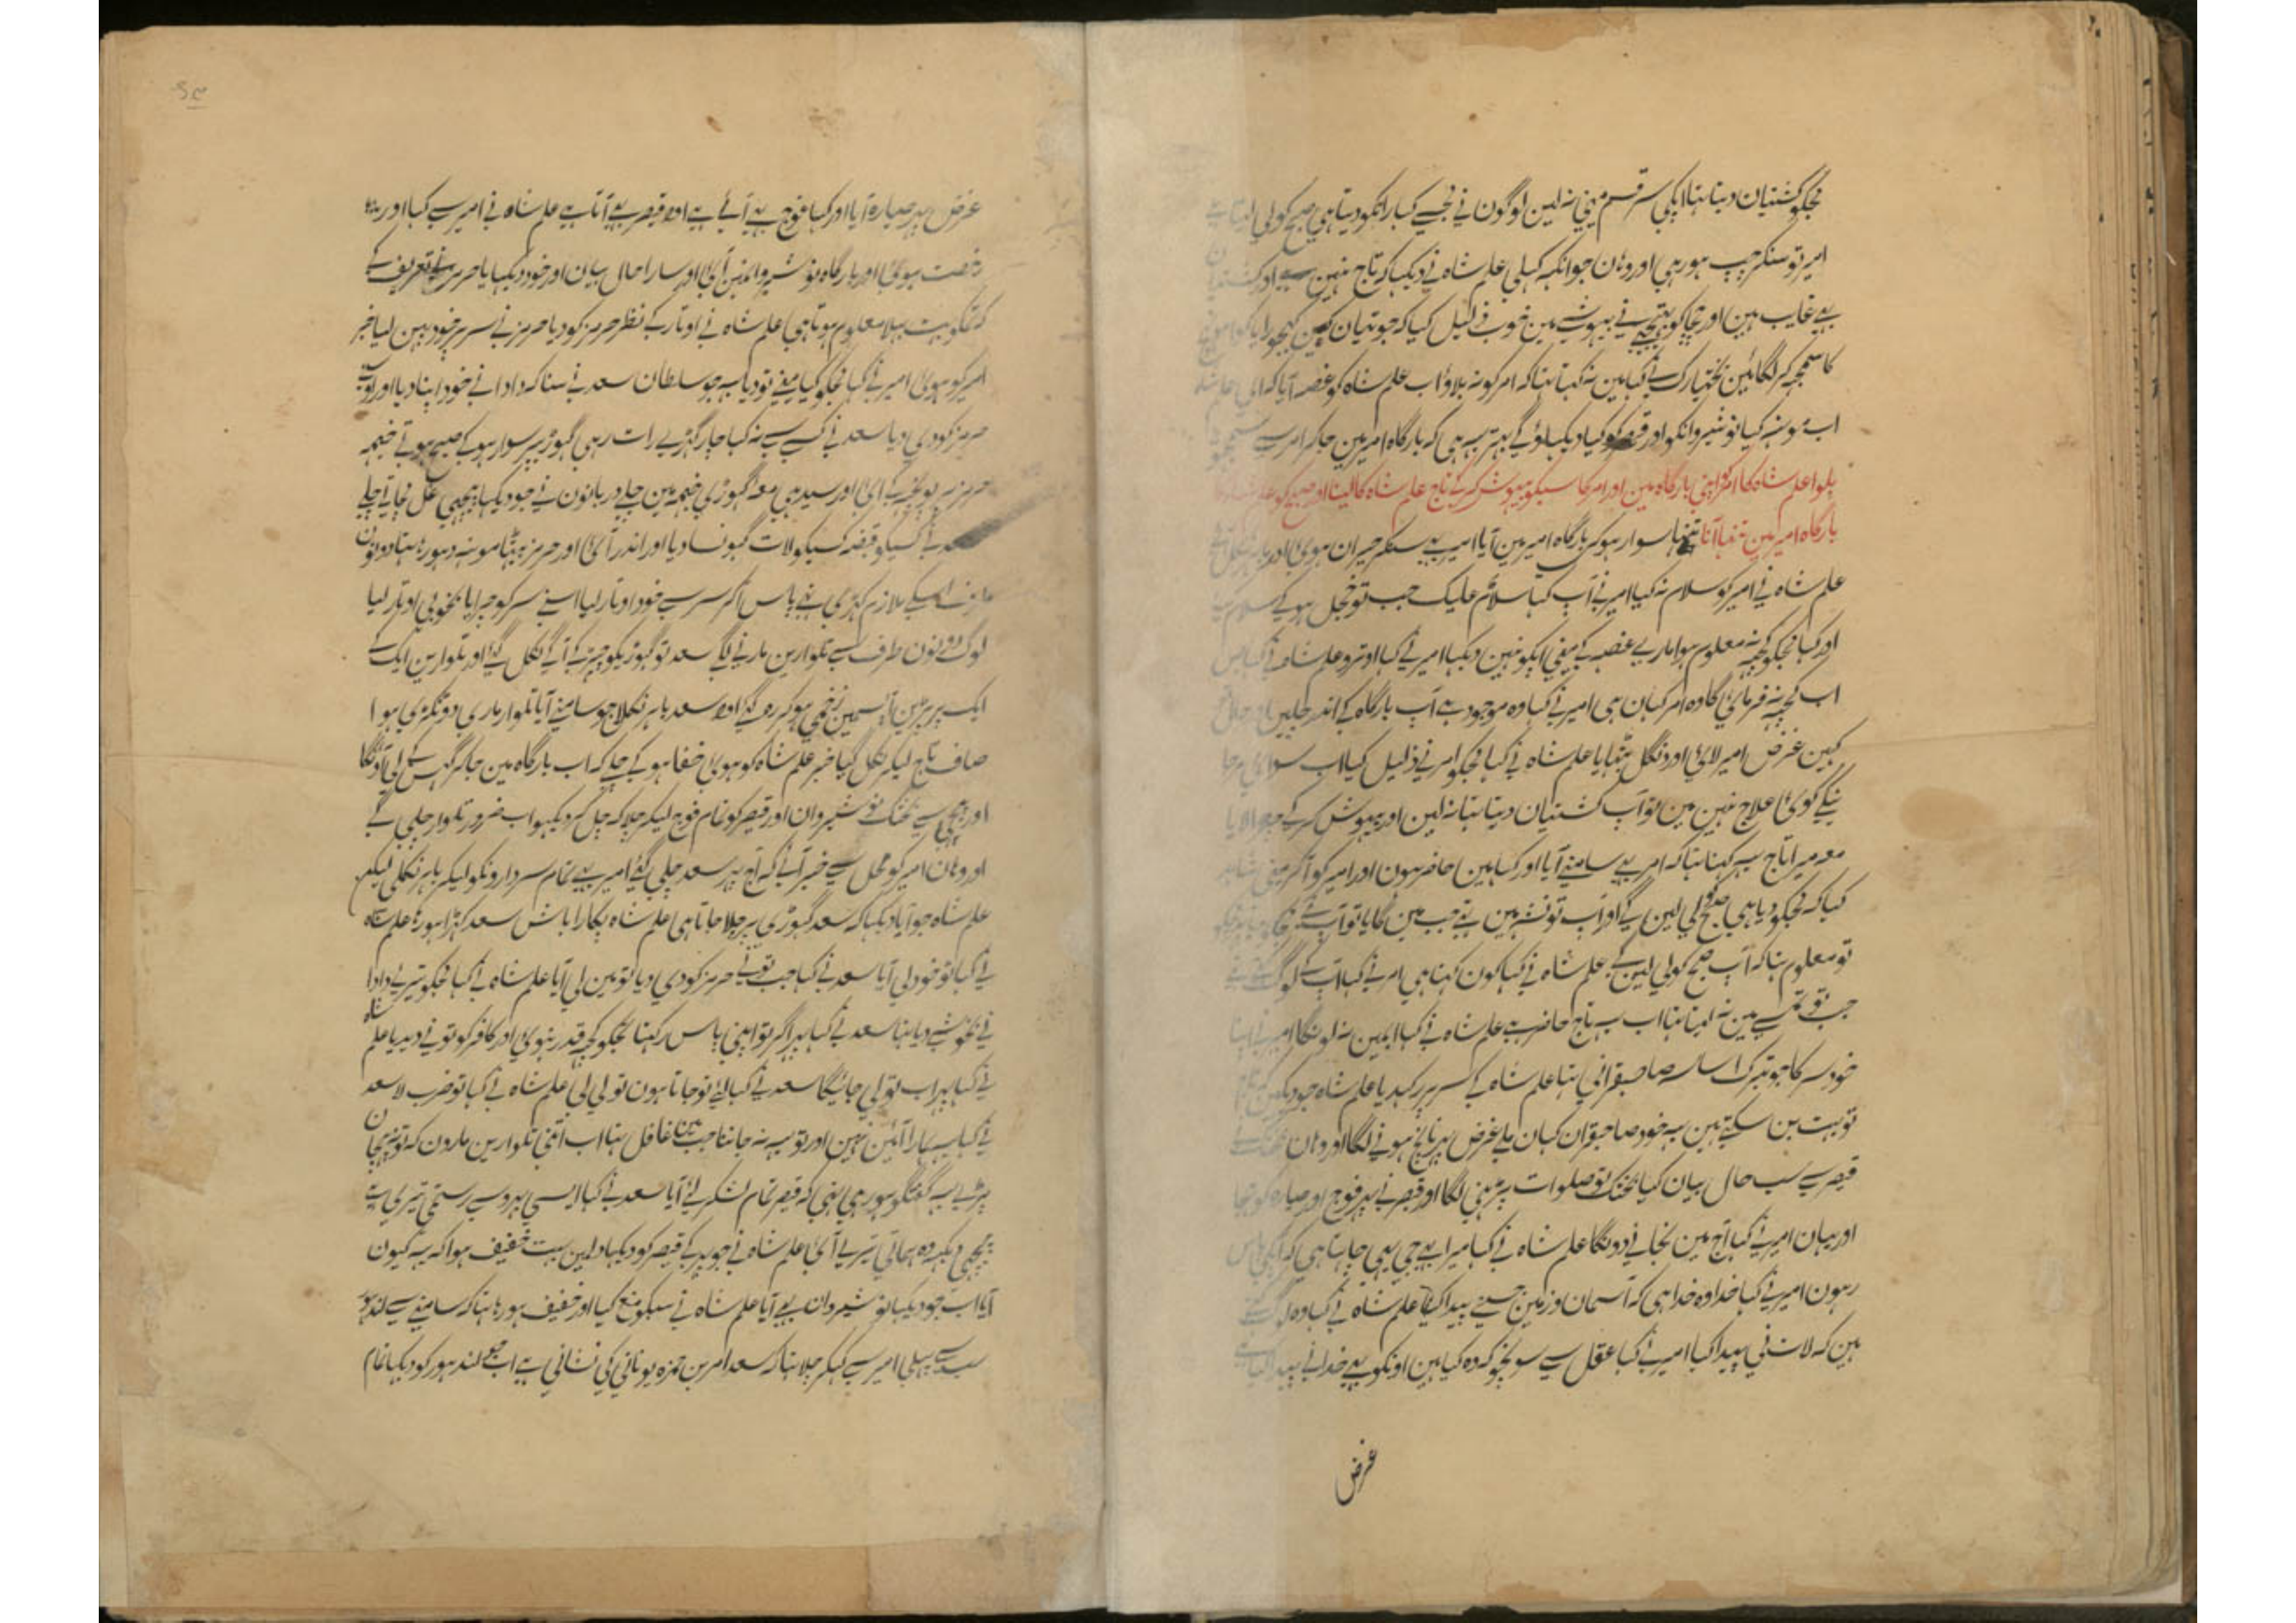 مجکو کشتیان دیتا تہا ایکی سر قسم مینی نہ لین لوگون نی مجسے کہا راتکو دیتا ہی صبح کو لی لیتا ہے
امیر تو سنکر چپ ہو رہی اور وہان جو انکہہ کہلی علم شاہ نی دیکہا کہ تاج نہین ہے اور کشتیان
بہی غایب ہین اور چچا کو بہتیجی نی بیہوشے مین خوب ذلیل کیا کہ جوتیان
کا سمجہہ کر لگائین بختیارک نے کہا مین نہ کہتا تہا کہ امر کو نہ بلاؤ اب علم شاہ کو غصہ آیا کہ ای علم شاہ
اب مونہہ کیا نوشیروانکو اور قیصر کو کیا دیکہلاؤ گے بہتر یہ ہی کہ بارگاہ امیر مین جا کر امر سے سمجہو
بلوا علم شاہ کا امر کو اپنی بارگاہ مین اور امر کا سبکو بیہوش کر کے تاج علم شاہ کا لینا اور صبح کو علم شاہ کا
بارگاہ امیر مین تنہا آنا تنہا سوار ہو کر بارگاہ امیر مین آیا امیر یہ سنکر حیران ہوئی اور باہر نکل آئے
علم شاہ نی امیر کو سلام نہ کیا امیر نی آپ کہا سلام علیک جب تو خجل ہو کے سلام کیا
اور کہا مجکو کچہہ نہ معلوم ہوا ماری غصہ کے مینی آپکو نہین دیکہا امیر نی کہا اوترو علم شاہ نی کہا بس
اب کچہہ نہ فرمائی گا وہ امر کہان ہی امیر نی کہا وہ موجود ہے آپ بارگاہ کے اندر چلین اور حال
کہین غرض امیر لائی اور دنگل بٹہایا علم شاہ نی کہا مجکو امر نی ذلیل کیا اب سوای مر جا
نیکے کوئی علاج نہین مین تو آپ کشتیان دیتا تہا نہ لین اور بیہوش کر کے چورا لایا
معہ میرا تاج یہ کہتا تہا کہ امر بہی سامنے آیا اور کہا مین حاضر ہون اور امیر کو آکر مینی
کہا کہ مجکو دیا ہی صبح لی لین گے اور آپ تو نشہ مین تہے جب مین گایا تو آپ نے
تو معلوم تہا کہ آپ صبح کو لی لین گے علم شاہ نی کہا کون کہتا ہی امر نی کہا آپ کے لوگ کہتے تہے
جب تو تم سے مین نہ لیتا تہا اب یہ تاج حاضر ہے علم شاہ نی کہا امین نہ لونگا امیر نی اپنا
خود سر کا جو تبرک اساسہ صاحبقرانی تہا علم شاہ کے سر پر رکہدیا علم شاہ جو دیکہین کہ تاج
تو بہت بن سکتے ہین یہ خود صاحبقران کہان ملے غرض پہر ناچ ہونی لگا اور وہان بختک نے
قیصر سے سب حال بیان کیا بختک تو صلوات پڑہنی لگا اور قیصر نی پہر فوج اور صیارہ کو بہیجا
اور یہان امیر نی کہا آج مین نجانی دونگا علم شاہ نی کہا میرا بہی جی یہی چاہتا ہی کہ آپکی پاس
رہون امیر نی کہا خدا وہ خدا ہی کہ آسمان اور زمین جسنے پیدا کیا علم شاہ نی کہا وہ لوگ کہتے
ہین کہ لات نی پیدا کیا امیر نی کہا عقل سے سونچو کہ وہ کیا ہین اونکو بہی خدا نی پیدا کیا ہے
غرض
غرض پہر صیارہ آیا اور کہا فوج بہی آئے ہے اور قیصر بہی آتا ہے علم شاہ نی امیر سے کہا اور
رخصت ہوئی اور بارگاہ نوشیروانمین آئی اور سارا حال بیان اور خود دیکہایا حرمز نے تعریف کے
کہ تمکو بہت بہلا معلوم ہوتا ہی علم شاہ نی اوتار کے نظر حرمز کو دیا حرمز نی سر پر خود پہن لیا خبر
امیر کو ہوئی امیر نی کہا مجکو کیا مینے تو دیا یہ جو سلطان سعد نی سنا کہ دادا نی خود اپنا دیا اور اونہے
حرمز کو دی دیا سعد نی کسی سے نہ کہا چار گہڑے رات رہی گہوڑیپر سوار ہو کے صبح ہوتے خیمہ
حرمز پر پہونچ کے آئی اور سیدہی معہ گہوڑی خیمہ مین چلے دربانون نی جو دیکہا پیچہی غل مچاتے چلے
سعد نی کسیکو قبضہ کسیکو لات گہونسا دیا اور اندر آئی اور حرمز بیٹہا مونہہ دہو رہا تہا دونون
طرف اسکے ملازم کہڑی تہے پاس آکر سر سے خود اوتار لیا اسنے سر کو چورایا بخوبی اوتار لیا
لوگ دونون طرف سے تلوارین مارنے لگے سعد تو گہوڑیکو چہیڑ کے آگے نکل گئے اور تلوارین ایک کے
ایک پر پڑین آپسمین زخمی ہو کر رہ گئے اور سعد باہر نکلا جو سامنے آیا تلوار ماری دو ٹکڑی ہوا
صاف تاج لیکر نکل گیا خبر علم شاہ کو ہوئی خفا ہو کے چلے کہ اب بارگاہ مین جا کر گہس کے لی آونگا
اور پیچہی سے بختک نوشیروان اور قیصر کو تمام فوج لیکر چلا کہ چل کر دیکہو اب ضرور تلوار چلیگی
اور وہان امیر کو محل سے خبر آئے کہ آج پہر سعد چلے گئے امیر بہی تمام سردارونکو لیکر باہر نکلی لیکن
علم شاہ جو آیا دیکہا کہ سعد گہوڑی پر چلا جاتا ہی علم شاہ پکارا باش سعد کہڑا ہو رہا علم شاہ
نی کہا تو خود لی آیا سعد نی کہا جب تونے حرمز کو دی دیا تو مین لی آیا علم شاہ نی کہا مجکو تیرے دادا
نی بخوشے دیا تہا سعد نی کہا پہر اگر تو اپنی پاس رکہتا تجکو کچہہ قدر نہوئی اور کافر کو تونے دیدیا علم شاہ
نی کہا پہر اب تو لی جائیگا سعد نی کہا لئے تو جاتا ہون تو لی لی علم شاہ نی کہا تو ضرب لا سعد
نی کہا یہ ہمارا آئین نہین اور تو یہ نہ جاننا جب مین غافل تہا اب اتنی تلوارین مارون کہ تو نہ پہچان
پڑے یہ گفتگو ہو رہی تہی کہ قیصر تمام لشکر لئے آیا سعد نی کہا ایسی پر وہ سے رستمی تیری ہے
پیچہی دیکہہ وہ حمائتی تیرے آئی علم شاہ نی جو پہر کے قیصر کو دیکہا دلمین بہت خفیف ہوا کہ یہ کیون
آیا اب جو دیکہا نوشیروان بہی آیا علم شاہ نی سبکو منع کیا اور خفیف ہو رہا تہا کہ سامنے سے لندہور
سب سے پہلی امیر سے کہکر چلا تہا کہ سعد امر بن حمزہ یونانی کی نشانی ہے اب جو لندہور کو دیکہا تمام